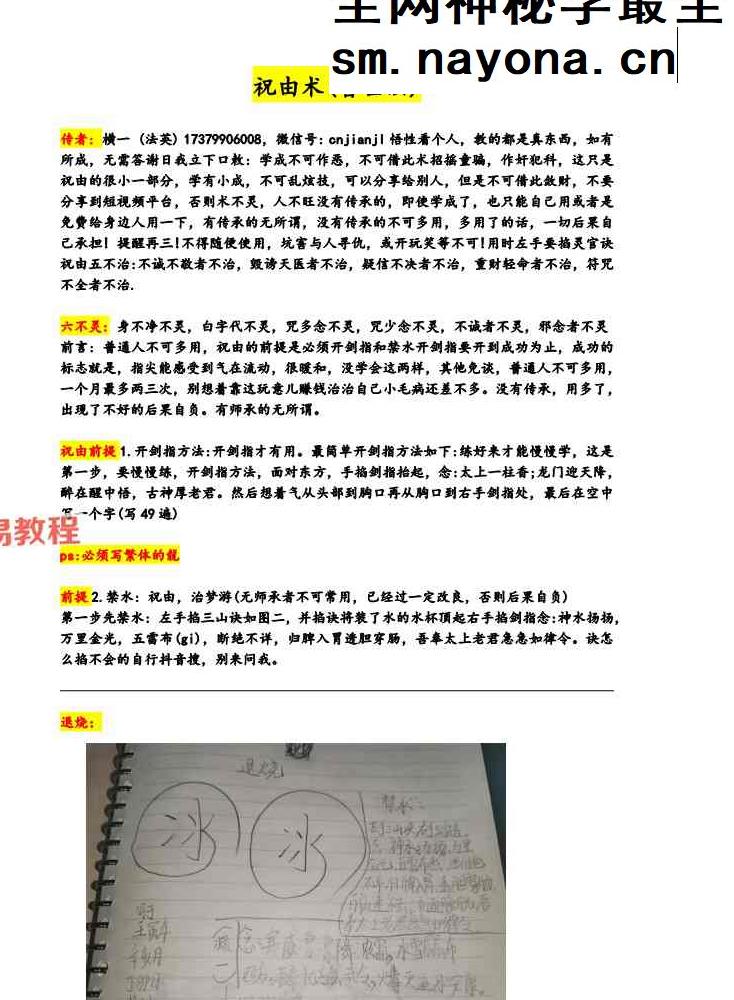 全网神秘学最全
sm.nayona.cn
祝由术
传者：横一 (法英)17379906008，微信号:cnjianjl 悟性看个人，教的都是真东西，如有
所成，无需答谢日我立下口教：学成不可作恶，不可借此术招摇童骗，作奸犯科，这只是
祝由的很小一部分，学有小成，不可乱炫技，可以分享给别人，但是不可借此敛财，不要
分享到短视频平台，否则术不灵，人不旺没有传承的，即使学成了，也只能自己用或者是
免费给身边人用一下，有传承的无所谓，没有传承的不可多用，多用了的话，一切后果自
己承担! 提醒再三!不得随便使用，坑害与人寻仇，或开玩笑等不可!用时左手要掐灵官诀
祝由五不治:不诚不敬者不治，毁谤天医者不治，疑信不决者不治，重财轻命者不治，符咒
不全者不治.
六不灵：身不净不灵，白字代不灵，咒多念不灵，咒少念不灵，不诚者不灵，邪念者不灵
前言：普通人不可多用，祝由的前提是必须开剑指和禁水开剑指要开到成功为止，成功的
标志就是，指尖能感受到气在流动，很暖和，没学会这两样，其他免谈，普通人不可多用，
一个月最多两三次，别想着靠这玩意儿赚钱治治自己小毛病还差不多。没有传承，用多了，
出现了不好的后果自负。有师承的无所谓。
祝由前提 1.开剑指方法:开剑指才有用。最简单开剑指方法如下:练好来才能慢慢学，这是
第一步，要慢慢练，开剑指方法，面对东方，手掐剑指抬起，念:太上一柱香;龙门迎天降，
醉在醒中悟，古神厚老君。然后想着气从头部到胸口再从胸口到右手剑指处，最后在空中
写一个字(写 49 遍)
易教程
ps:必须写繁体的龍
前提 2.禁水：祝由，治梦游(无师承者不可常用，已经过一定改良，否则后果自负)
第一步先禁水：左手掐三山诀如图二，并掐诀将装了水的水杯顶起右手掐剑指念:神水扬扬，
万里金光，五雷布(gi)，断绝不详，归脾入胃透胆穿肠，吾奉太上老君急急如律令。诀怎
么掐不会的自行抖音搜，别来问我。
退烧：
退烧
冰
冰
禁水：